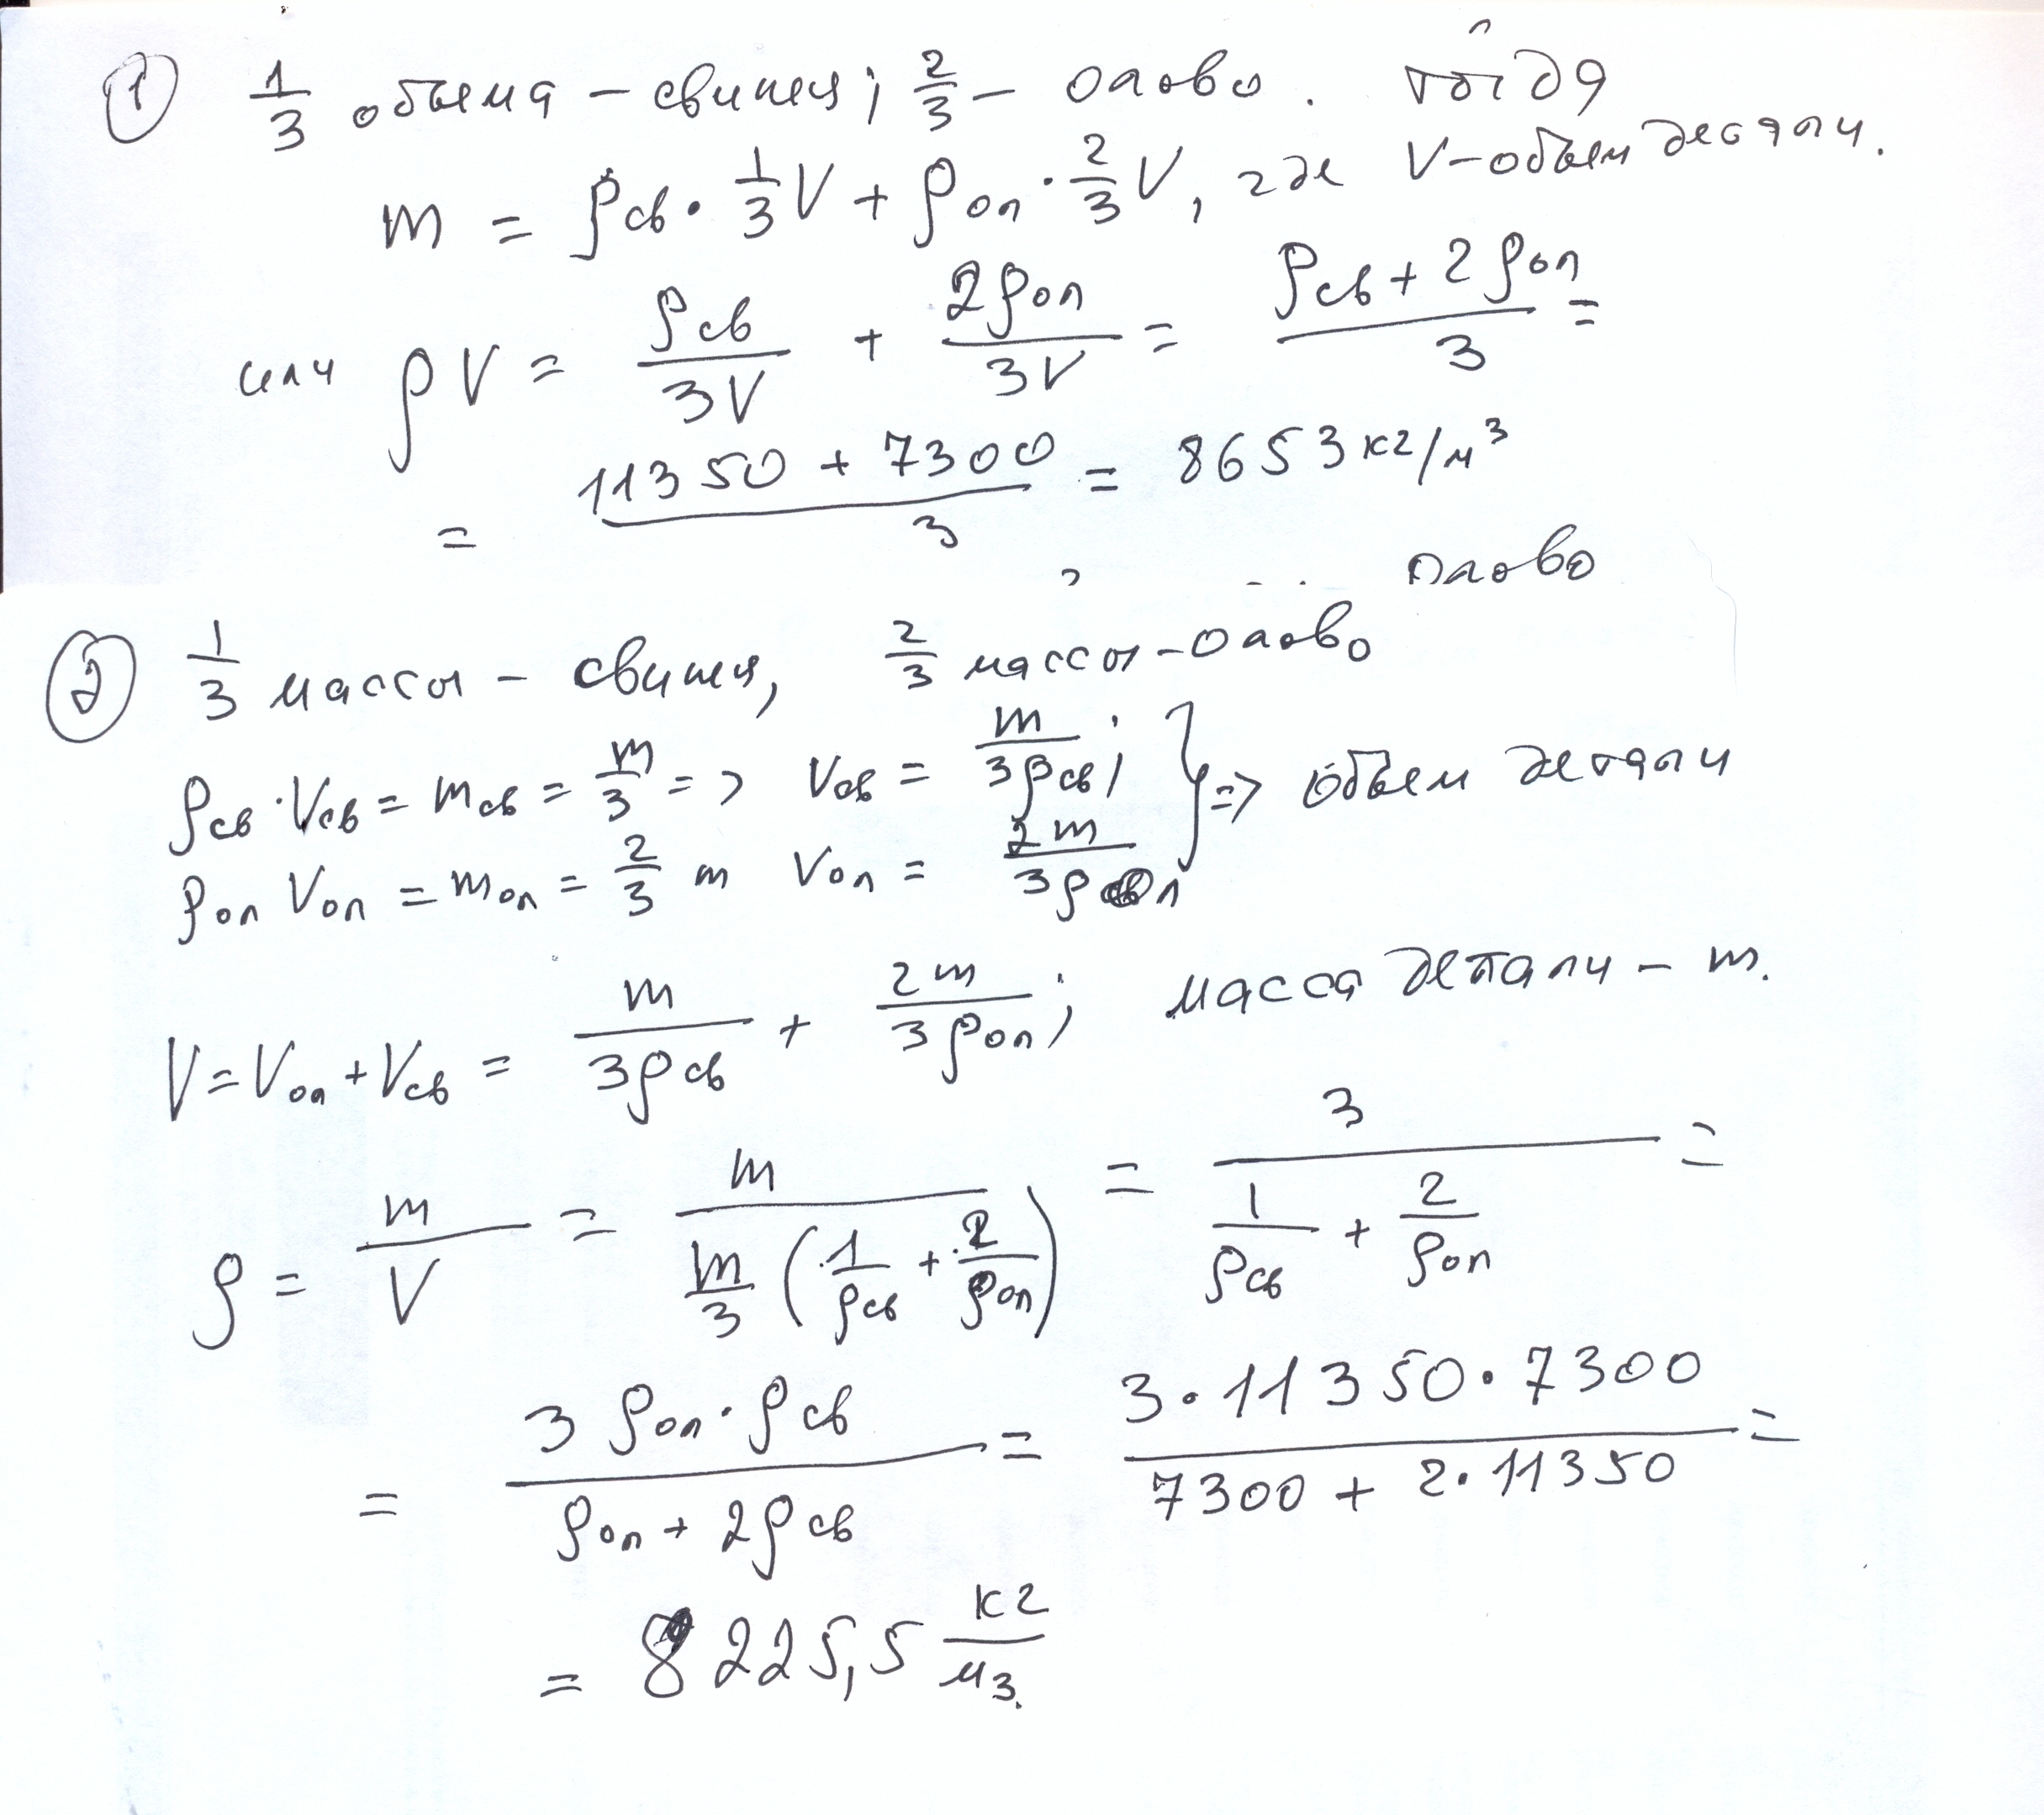 ① 1/3 объема – свинец; 2/3 – олово. тогда
m = ρсв · 1/3 V + ρол · 2/3 V, где V – объем детали.
или ρV = ρсв/3V + 2ρол/3V = (ρсв + 2ρол)/3 =
= (11350 + 7300)/3 = 8653 кг/м³
олово
② 1/3 массы – свинец, 2/3 массы – олово
ρсв · Vсв = mсв = m/3 => Vсв = m/3ρсв; } => объем детали
ρол Vол = mол = 2/3 m Vол = 2m/3ρол
V = Vол + Vсв = m/3ρсв + 2m/3ρол; масса детали – m.
ρ = m/V = m/(m/3 (1/ρсв + 2/ρол)) = 3/(1/ρсв + 2/ρол) =
= 3 ρол · ρсв/(ρол + 2ρсв) = 3 · 11350 · 7300/(7300 + 2 · 11350) =
= 8225,5 кг/м3.